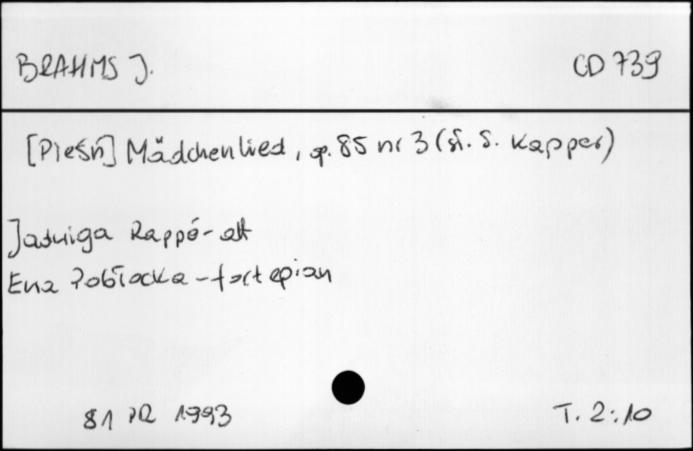 BRAHMS J. CD 739
[Pieśń] Mädchenlied, op. 85 nr 3 (sł. S. Kapper)
Jadwiga Rappé - alt
Ewa Pobłocka - fortepian
81 PR 1993 T. 2:10